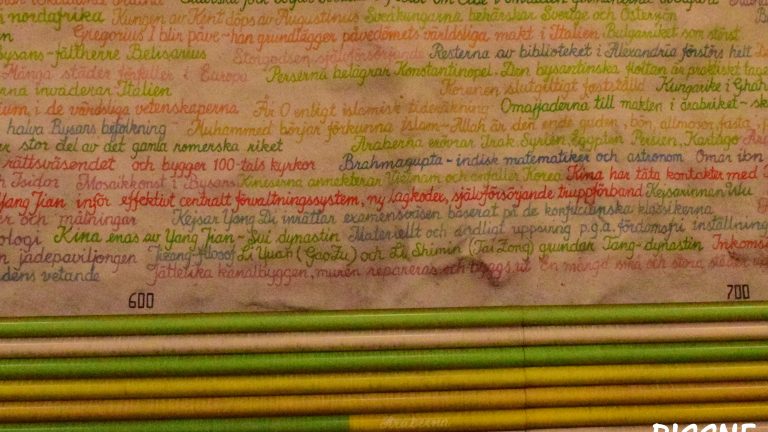 i nordafrika Kungen av Kent döps av Augustinus Sveakungarna behärskar Sverige och Österjön
Gregorius I blir påve-han grundlägger påvedömets världsliga makt i Italien Bulgariket som störst
Bysans-fältherre Belisarius Storgodsen, självförsörjande Resterna av biblioteket i Alexandria förstörs helt
Många städer förfaller i Europa Perserna belägrar Konstantinopel. Den bysantinska flottan är praktiskt
erna invaderar Italien Koranen slutgiltigt fastställd Kungarike i Ghana
ium, i de världsliga vetenskaperna År 0 enligt islamisk tideräkning Omajjaderna till makten i arabriket
halva Bysans befolkning Muhammed börjar förkunna islam-Allah är den ende guden, bön, allmosor, fasta,
er stor del av det gamla romerska riket Araberna erövrar Irak, Syrien, Egypten, Persien, Kartago
rättsväsendet och bygger 100-tals kyrkor Brahmagupta - indisk matematiker och astronom Omar ibn
Isidor Mosaikkonst i Bysans Kineserna annekterar Vietnam och anfaller Korea Kina har täta kontakter med
Yang Jian inför effektivt centralt förvaltningssystem, ny lagkodex, självförsörjande truppförband Kejsarinnan Wu
er och målningar Kejsar Yang Di inrättar examensväsen baserat på de konfucianska klassikerna
ologi Kina enas av Yang Jian - Sui dynastin Materiellt och andligt uppsving p.g.a. fördomsfri inställning
n jadepaviljongen filosof Li Yuan (Gao Zu) och Li Shimin (Tai Zong) grundar Tang-dynastin
dens vetande Jättelika kanalbyggen, muren repareras och byggs ut En mängd små och stora
600 700
Araberna